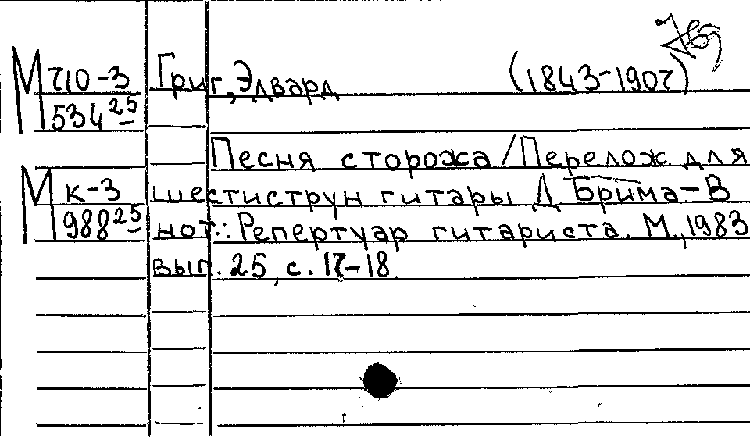 М 710-3 Григ, Эдвард (1843-1907)
534 25
Песня сторожа / Перелож для
М К-3 шестиструн гитары Д. Брима - В
988 25 нот.: Репертуар гитариста. М., 1983
вып. 25, с. 17-18